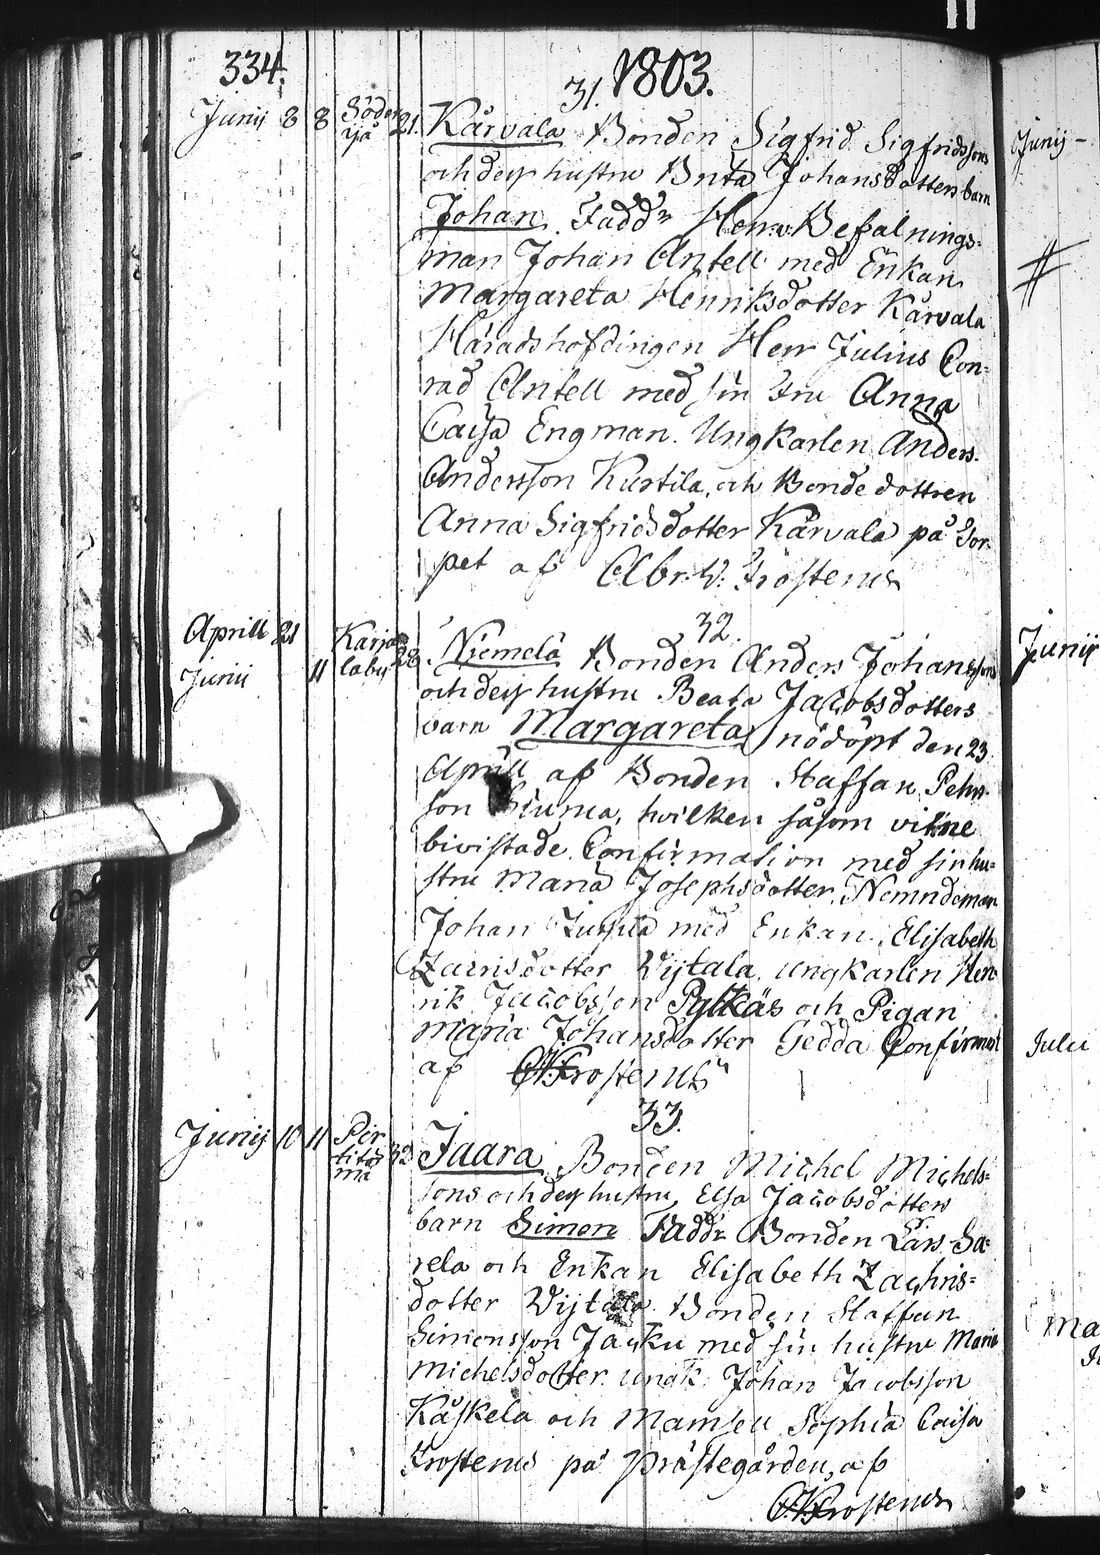 334.
1803.
31.
Junij 8 8 Söder
yå 21. Kärvala Bonden Sigfrid Sigfridssons
och dess hustru Brita Johansdotters barn
Johan. Faddr Herr Befalnings-
man Johan Antell med Enkan
Margareta Henriksdotter Kärvala
Häradshöfdingen Herr Julius Con-
rad Antell med sin Fru Anna
Caisa Engman. Ungkarlen Anders
Andersson Kurtila, och Bondedottren
Anna Sigfridsdotter Kärvala på Tor-
pet af Abr. W: Frostenus
32.
Aprill 21 Karja
Junii 11 laby 28. Niemelä Bonden Anders Johanssons
och dess hustru Beata Jacobsdotters
barn Margareta nödöpt den 23
Aprill af Bonden Staffan Pehrs-
son, hvilken såsom vitne
bivistade Confirmation med sin hu-
stru Maria Josephsdotter, Nemndeman
Johan med Enkan Elisabeth
Zacrisdotter Wijtala, ungkarlen Hen
rik Jacobsson Pylkäs och Pigan
Maria Johansdotter Gedda Confirmert
af Frostenus
33.
Junij 10 11 Per
titil
mä 32 Jaara Bonden Michel Michels-
sons och dess hustru, Elsa Jacobsdotters
barn Simon Faddr Bonden Lars Sa-
rela och Enkan Elisabeth Zachris-
dotter Wijtala Bonden Staffan
Simonsson Jacku med sin hustru Maria
Michelsdotter ungk. Johan Jacobsson
Käskela och Mamsell Sophia Caisa
Frostenus på Prästegården, af
Frostenus
Junij
#
Junij
Julii
Ma